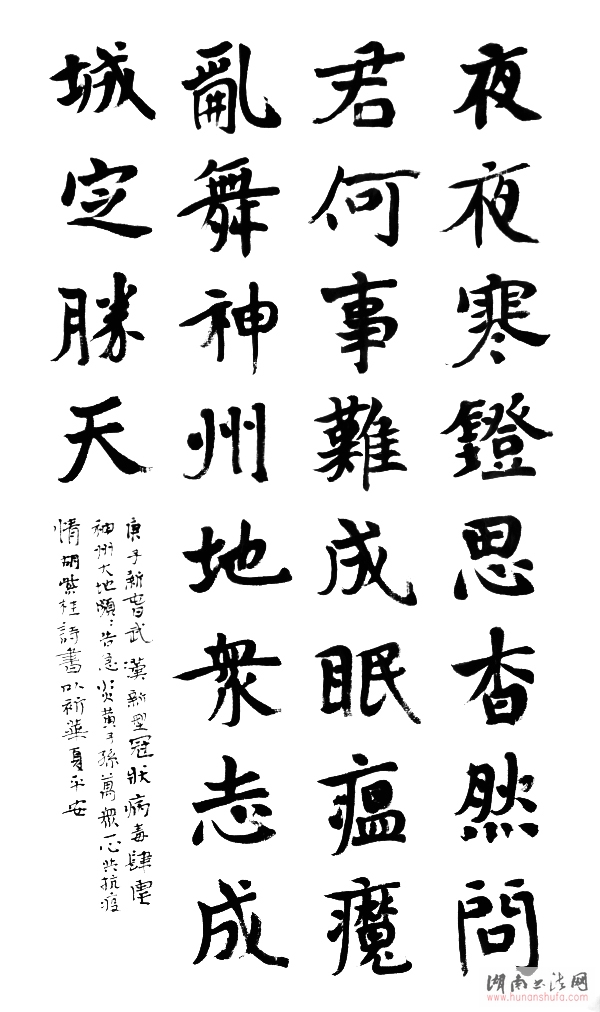 夜夜寒鐙思杳然問
君何事難成眠瘟魔
亂舞神州地衆志成
城定勝天
庚子新春武漢新型冠狀病毒肆虐
神州大地頻頻告急炎黃子孫萬衆一心共抗疫
情胡紫桂詩書以祈華夏平安
湖南书法网
www.hunanshufa.com